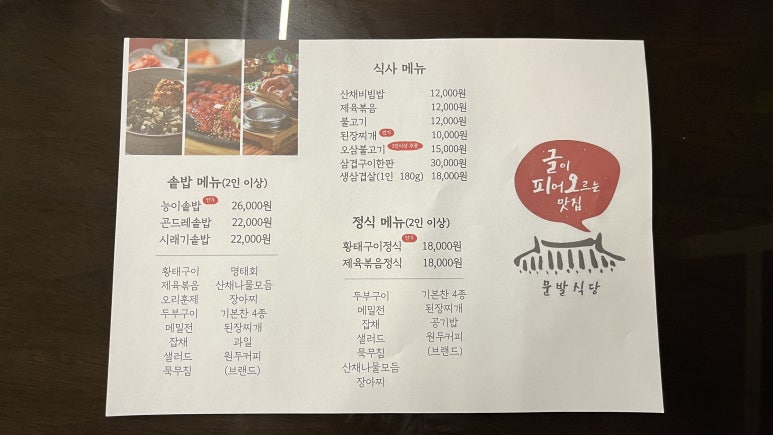 솥밥 메뉴(2인 이상)
능이솥밥 인기 26,000원
곤드레솥밥 22,000원
시래기솥밥 22,000원
황태구이 명태회
제육볶음 산채나물모듬
오리훈제 장아찌
두부구이 기본찬 4종
메밀전 된장찌개
잡채 과일
샐러드 원두커피
묵무침 (브랜드)
식사 메뉴
산채비빔밥 12,000원
제육볶음 12,000원
불고기 12,000원
된장찌개 인기 10,000원
오삼불고기 2인이상 주문 15,000원
삼겹구이한판 30,000원
생삼겹살(1인 180g) 18,000원
정식 메뉴(2인 이상)
황태구이정식 인기 18,000원
제육볶음정식 18,000원
두부구이 기본찬 4종
메밀전 된장찌개
잡채 공기밥
샐러드 원두커피
묵무침 (브랜드)
산채나물모듬
장아찌
글이
피어오르는
맛집
문발식당